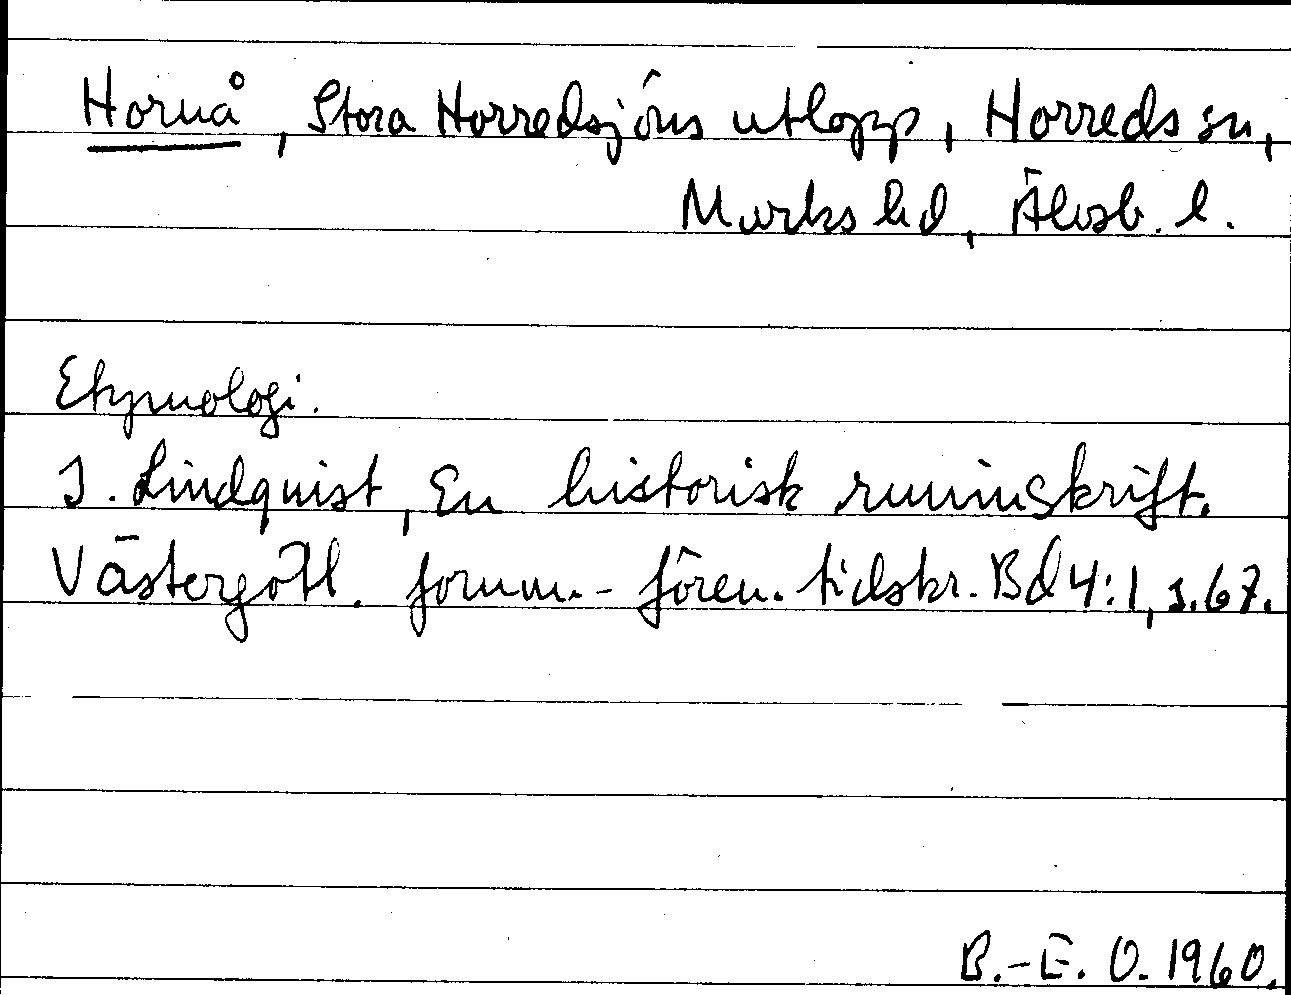 Hornå, Stora Horredsjöns utlopp, Horreds sn,
Marks hd, Älvsb. l.
Etymologi.
I. Lindquist, En historisk runinskrift.
Västergötl. fornm.-fören. tidskr. Bd 4:1, s.67.
B.-E. O. 1960.